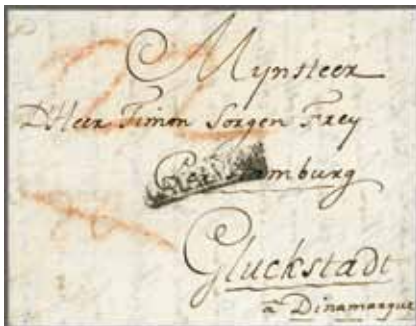 Mynsteer
D'Heer Timon Sorgen Frey
Per Hamburg
Gluckstadt
à Dinamarque